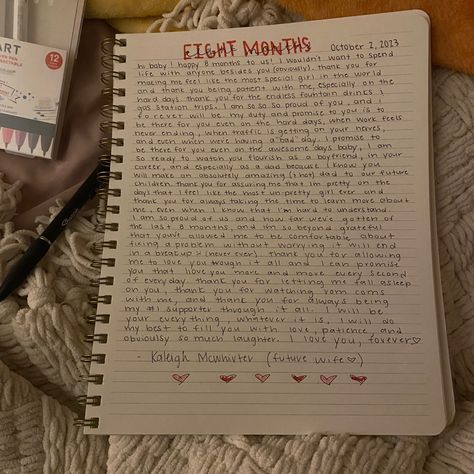 EIGHT MONTHS
October 2, 2023
hi baby! happy 8 months to us! I wouldn't want to spend
life with anyone besides you (obviously). thank you for
making me feel like the most special girl in the world
and thank you being patient with me, especially on the
hard days. thank you for the endless fountain drinks &
gas station trips. I am so so so proud of you, and I
forever will be. my duty and promise to you is to
be there for you even on the hard days, when work feels
never ending, when traffic is getting on your nerves,
and even when were having a bad day. I promise to
be there for you even on the awesome days baby, I am
so ready to watch you flourish as a boyfriend, in your
career, and especially as a dad because I know you
will make an absolutely amazing (& hot) dad to our future
children. thank you for assuring me that im pretty on the
days that I feel like the most un-pretty girl ever, and
thank you for always taking the time to learn more about
me, even when I know that I'm hard to understand.
I am so proud of us and how far we've gotten of
the last 8 months, and im so beyond grateful
that you've allowed me to be comfortable about
fixing a problem without worrying it will end
in a breakup (never ever). thank you for allowing
me to love you through it all and I can promise
you that I love you more and more every second
of everyday. thank you for letting me fall asleep
on you, thank you for watching rom coms
with me, and thank you for always being
my #1 supporter through it all. I will be
your everything, whatever it is, I will do
my best to fill you with love, patience, and
obviously so much laughter. I love you, forever♡
- Kaleigh McWhirter (future wife♡)
ART
12